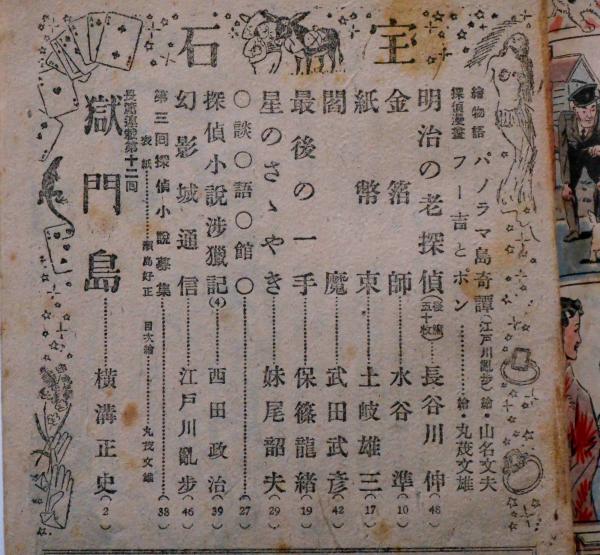 宝石
繪物語 パノラマ島奇譚(江戸川亂歩)繪・山名文夫
探偵漫畫 フー吉とポン………繪・丸茂文雄
明治の老探偵(長篇五十枚)…長谷川伸(48)
金箔師…水谷準(10)
紙幣束…土岐雄三(17)
閻魔…武田武彦(42)
最後の一手…保篠龍緒(19)
星のさゝやき…妹尾韶夫(29)
〇談〇語〇館〇…(27)
探偵小説渉獵記(4)…西田政治(39)
幻影城通信…江戸川亂歩(46)
第三回探偵小説募集…(38)
表紙…瀬島好正 目次繪…丸茂文雄
長篇連載第十二回
獄門島…横溝正史(2)